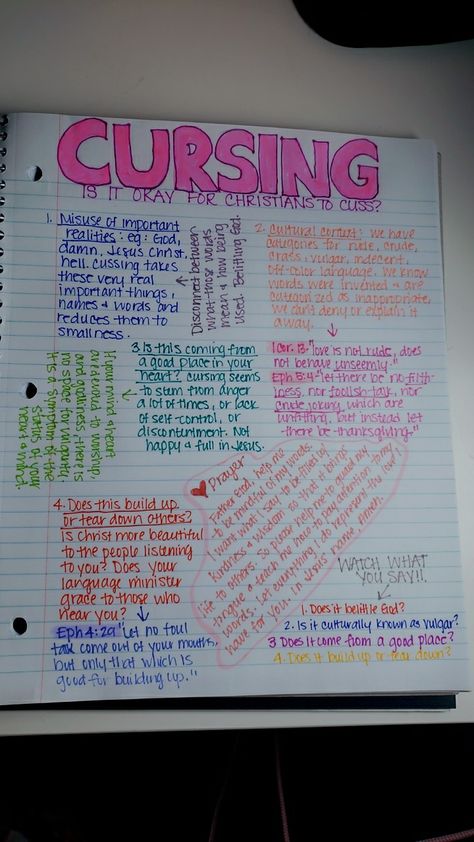 CURSING
IS IT OKAY FOR CHRISTIANS TO CUSS?
1. Misuse of important
realities: eg: God,
damn, Jesus Christ,
hell. Cussing takes
these very real
important things,
names & words and
reduces them to
smallness.
Disconnect between
what those words
mean & how being
used. Belittling God.
2. Cultural context: we have
categories for rude, crude,
crass, vulgar, indecent,
off-color language. We know
words were invented & are
categorized as inappropriate,
we can't deny or explain it
away.
1 Cor. 13 "love is not rude, does
not behave unseemly."
Eph 5:4 "let there be no filth-
iness, nor foolish talk, nor
crude joking, which are
unfitting, but instead let
there be thanksgiving."
3. Is this coming from
a good place in your
heart? Cursing seems
to stem from anger
a lot of times, or lack
of self-control, or
discontentment. Not
happy & full in Jesus.
If your mind & heart
are tuned to worship,
and gladness, there is
no space for vulgarity,
It's a symptom of the
status of your
heart & mind.
4. Does this build up
or tear down others?
Is Christ more beautiful
to the people listening
to you? Does your
language minister
grace to those who
hear you?
Eph 4:29 "Let no foul
talk come out of your mouths,
but only that which is
good for building up."
Prayer
Father God, help me
to be mindful of my words.
I want what I say to be filled w/
kindness & wisdom, so that it brings
life to others. So please help me to guard my
tongue & teach me how to pay attention to my
words. Let everything I do represent the love I
have for you. In Jesus' name, Amen.
WATCH WHAT
YOU SAY!!
1. Does it belittle God?
2. Is it culturally known as vulgar?
3 Does it come from a good place?
4. Does it build up or tear down?